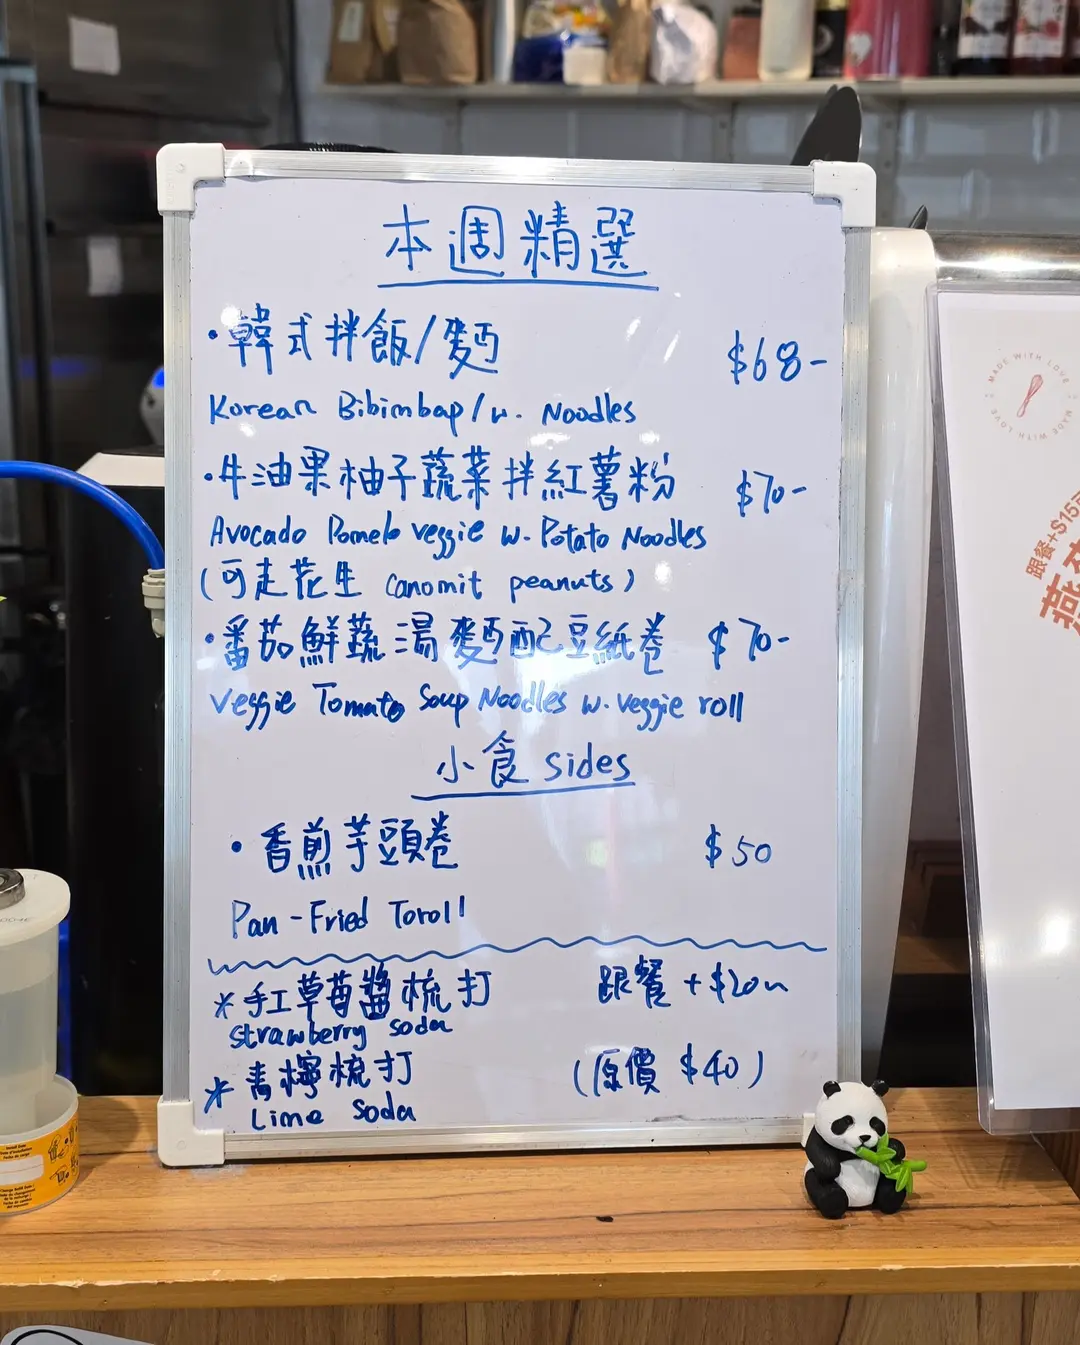 本週精選
·韓式拌飯/麵 $68-
Korean Bibimbap/w. Noodles
·牛油果柚子蔬菜拌紅薯粉 $70-
Avocado Pomelo veggie w. Potato Noodles
(可走花生 can omit peanuts)
·番茄鮮蔬湯麵配豆紙卷 $70-
Veggie Tomato Soup Noodles w. veggie roll
小食 sides
·香煎芋頭卷 $50
Pan-Fried Toroll
*手工草莓醬梳打 跟餐+$20
strawberry soda
*青檸梳打 (原價 $40)
Lime soda
MADE WITH LOVE
MADE WITH LOVE
跟餐+$15
燕